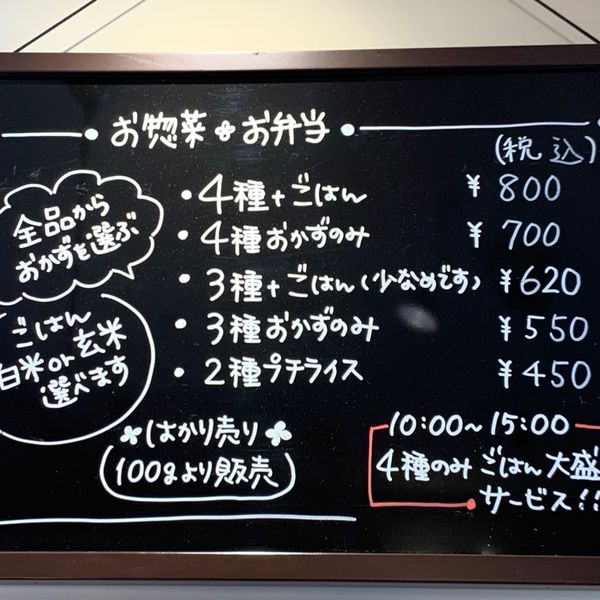 お惣菜 お弁当
(税込)
全品から
おかずを選ぶ
・4種+ごはん ¥800
・4種おかずのみ ¥700
・3種+ごはん(少なめです) ¥620
・3種おかずのみ ¥550
・2種プチライス ¥450
ごはん
白米or玄米
選べます
はかり売り
100gより販売
10:00~15:00
4種のみ ごはん大盛
サービス!!